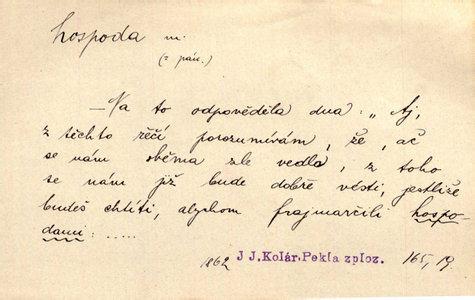 hospoda m.
(z pán.)
— Na to odpověděla dna: „Aj,
z těchto řěčí porozumívám, že, ač
se nám oběma zle vedla, z toho
se nám již bude dobře vésti, jestliže
budeš chtíti, abychom frajmarčili hospo-
dami: .....
1862 J J. Kolár. Pekla zploz. 165, 19.